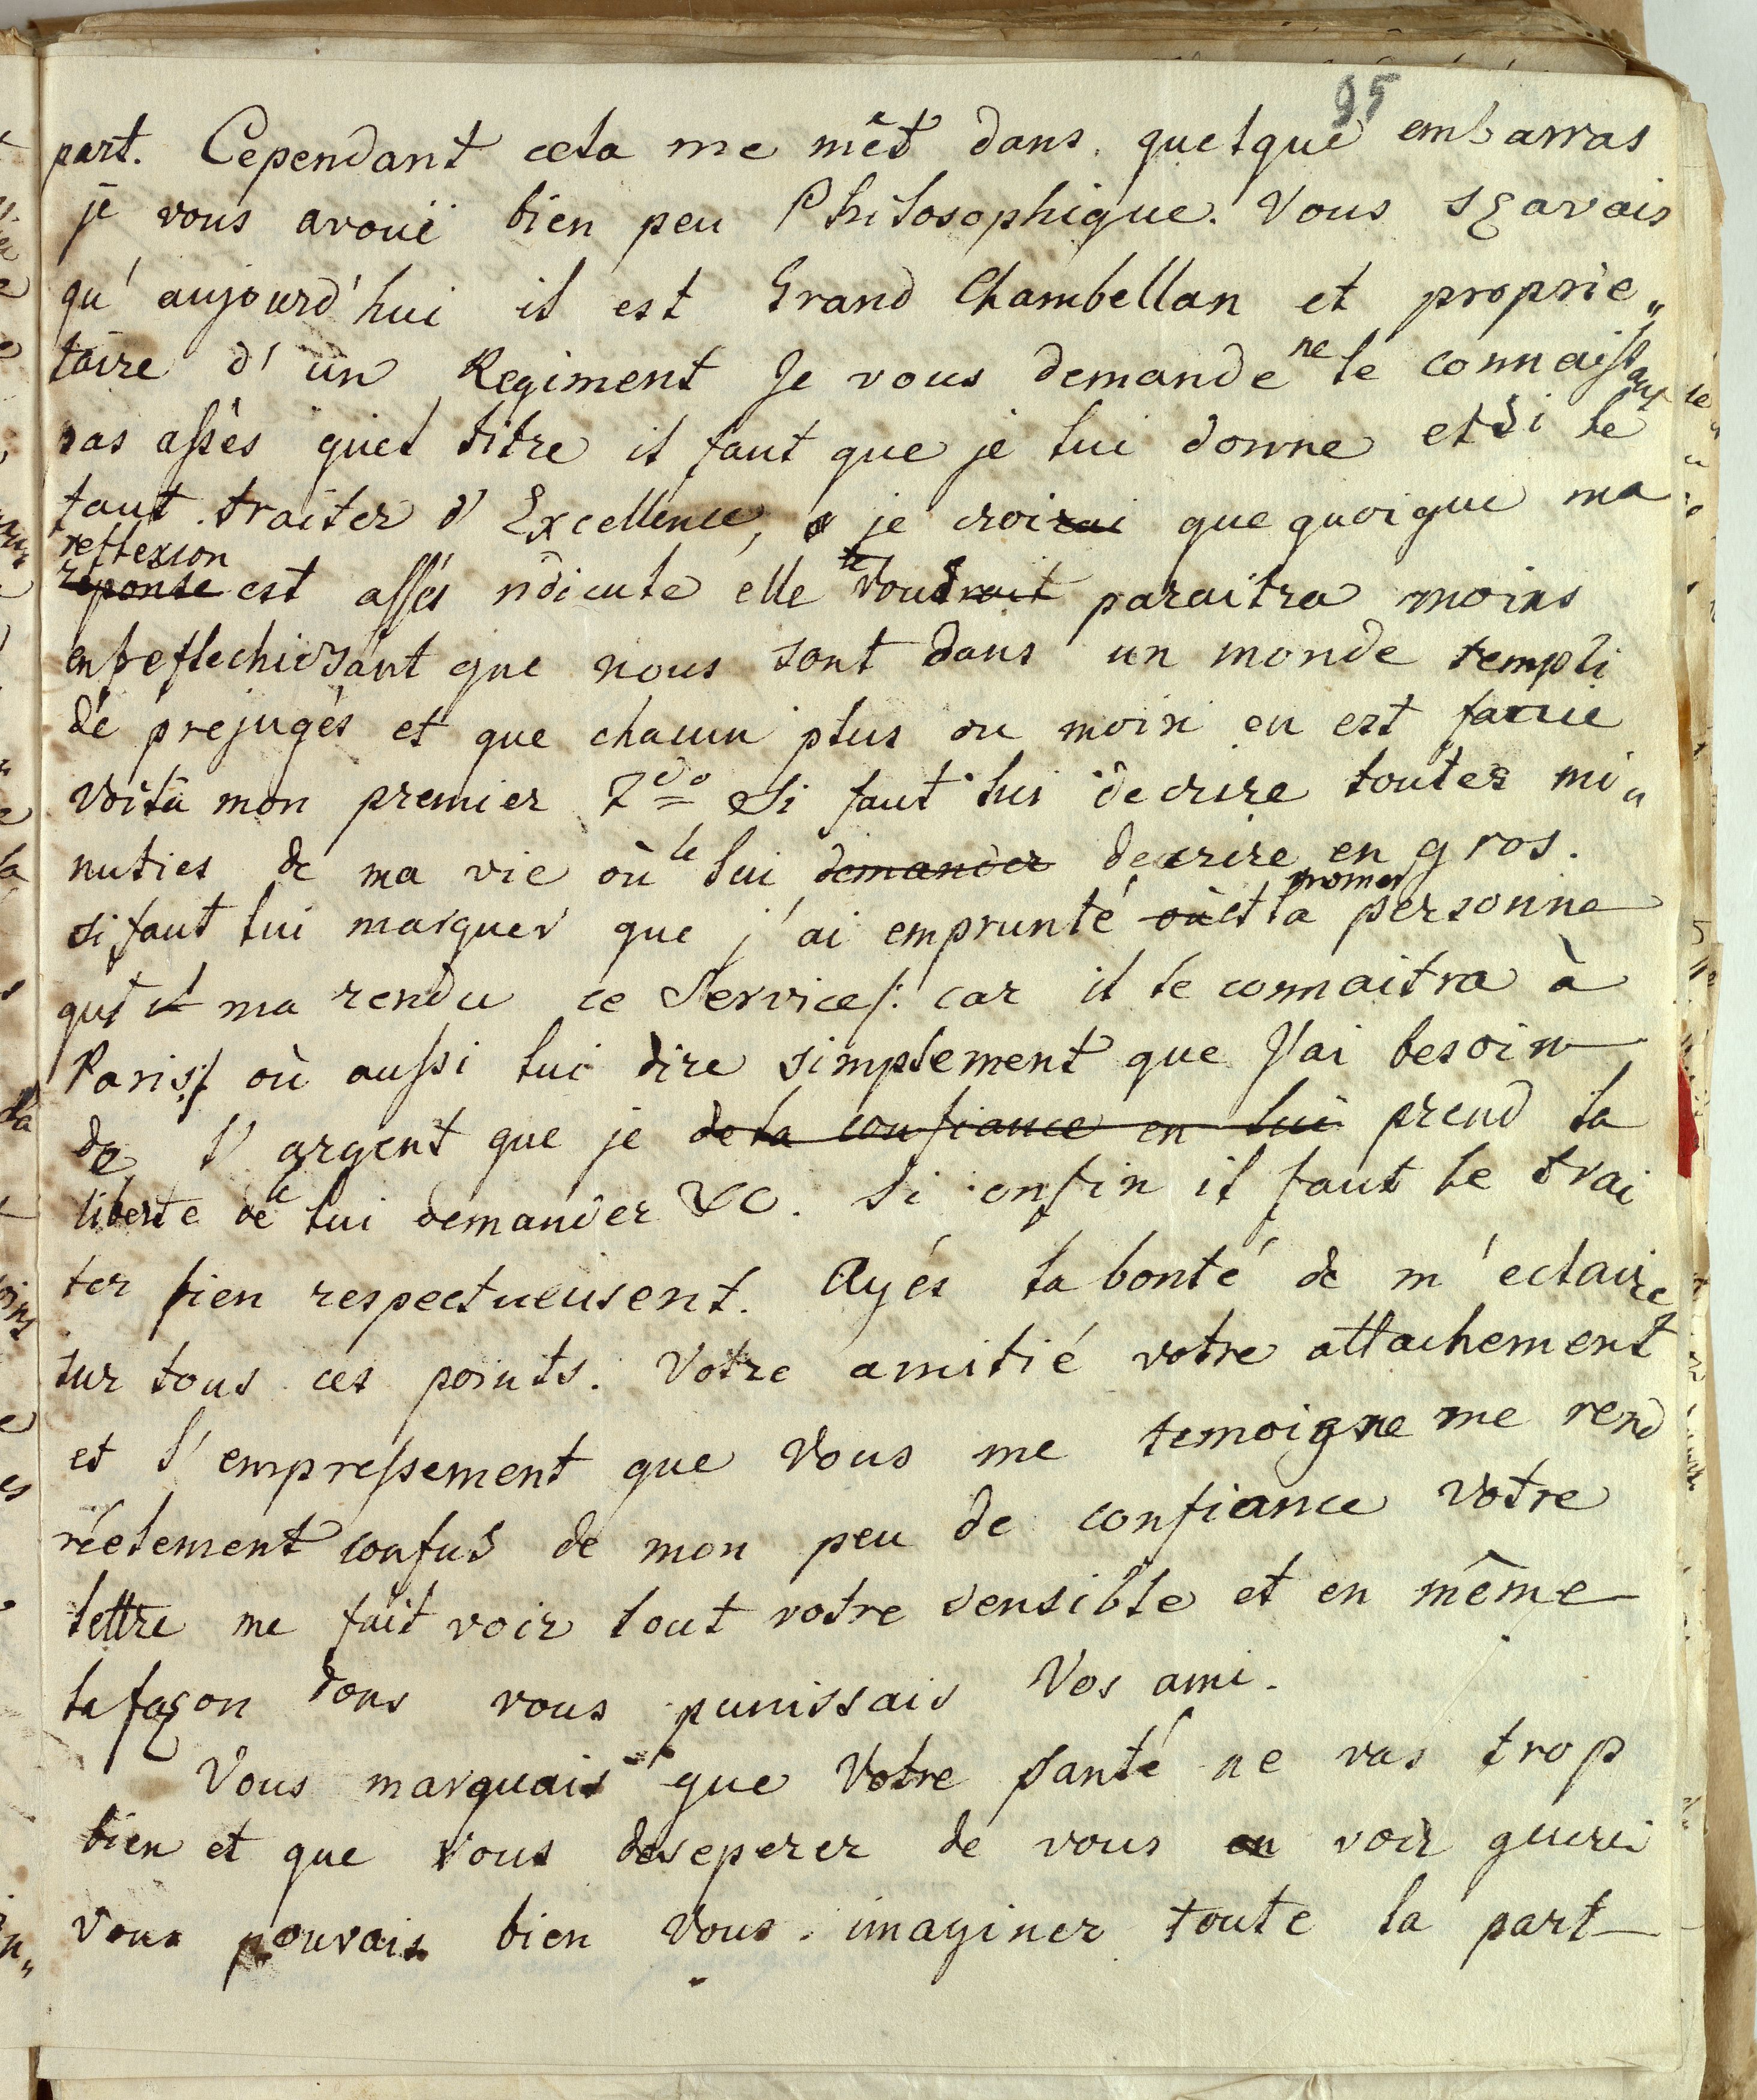 95
part. Cependant cela me mêt dans quelque embarras
je vous avoüe bien peu Philosophique. Vous sçavais
qu'aujourd'hui il est Grand Chambellan et proprie„
taire d'un Regiment Je vous demande ne le connaissant
pas assès quel titre il faut que je lui donne et si le
faut traiter d'Excellence, je croirai que quoique ma
reflexion
reponse est assés ridicule elle le voudrait paraitra moins
en reflechissant que nous sont dans un monde rempli
de prejugés et que chacun plus ou moin en est farcie
Voila mon premier 2do Si faut lui decrire toutes mi„
nuties de ma vie où le lui demander decrire en gros.
si faut lui marquer que j'ai emprunté où et la nomer personne
qui il ma rendu ce Service/: car il le connaitra à
Paris:/ où aussi lui dire simplement que J'ai besoin
de l'argent que je de la confiance en lui prend la
liberte de le lui demander &c. Si enfin il faut le trai
ter bien respectueusent. Ayés la bonté de m'eclairer
sur tous ces points. Votre amitié votre attachement
et l'empressement que Vous me temoigne me rend
réelement confus de mon peu de confiance Votre
lettre me fait voir tout votre sensible et en même
la façon dons vous punissais Vos ami.
Vous marquais que Votre santé ne vas trop
bien et que Vous deseperer de vous en voir gueri
Vous pouvais bien Vous imaginer toute la part